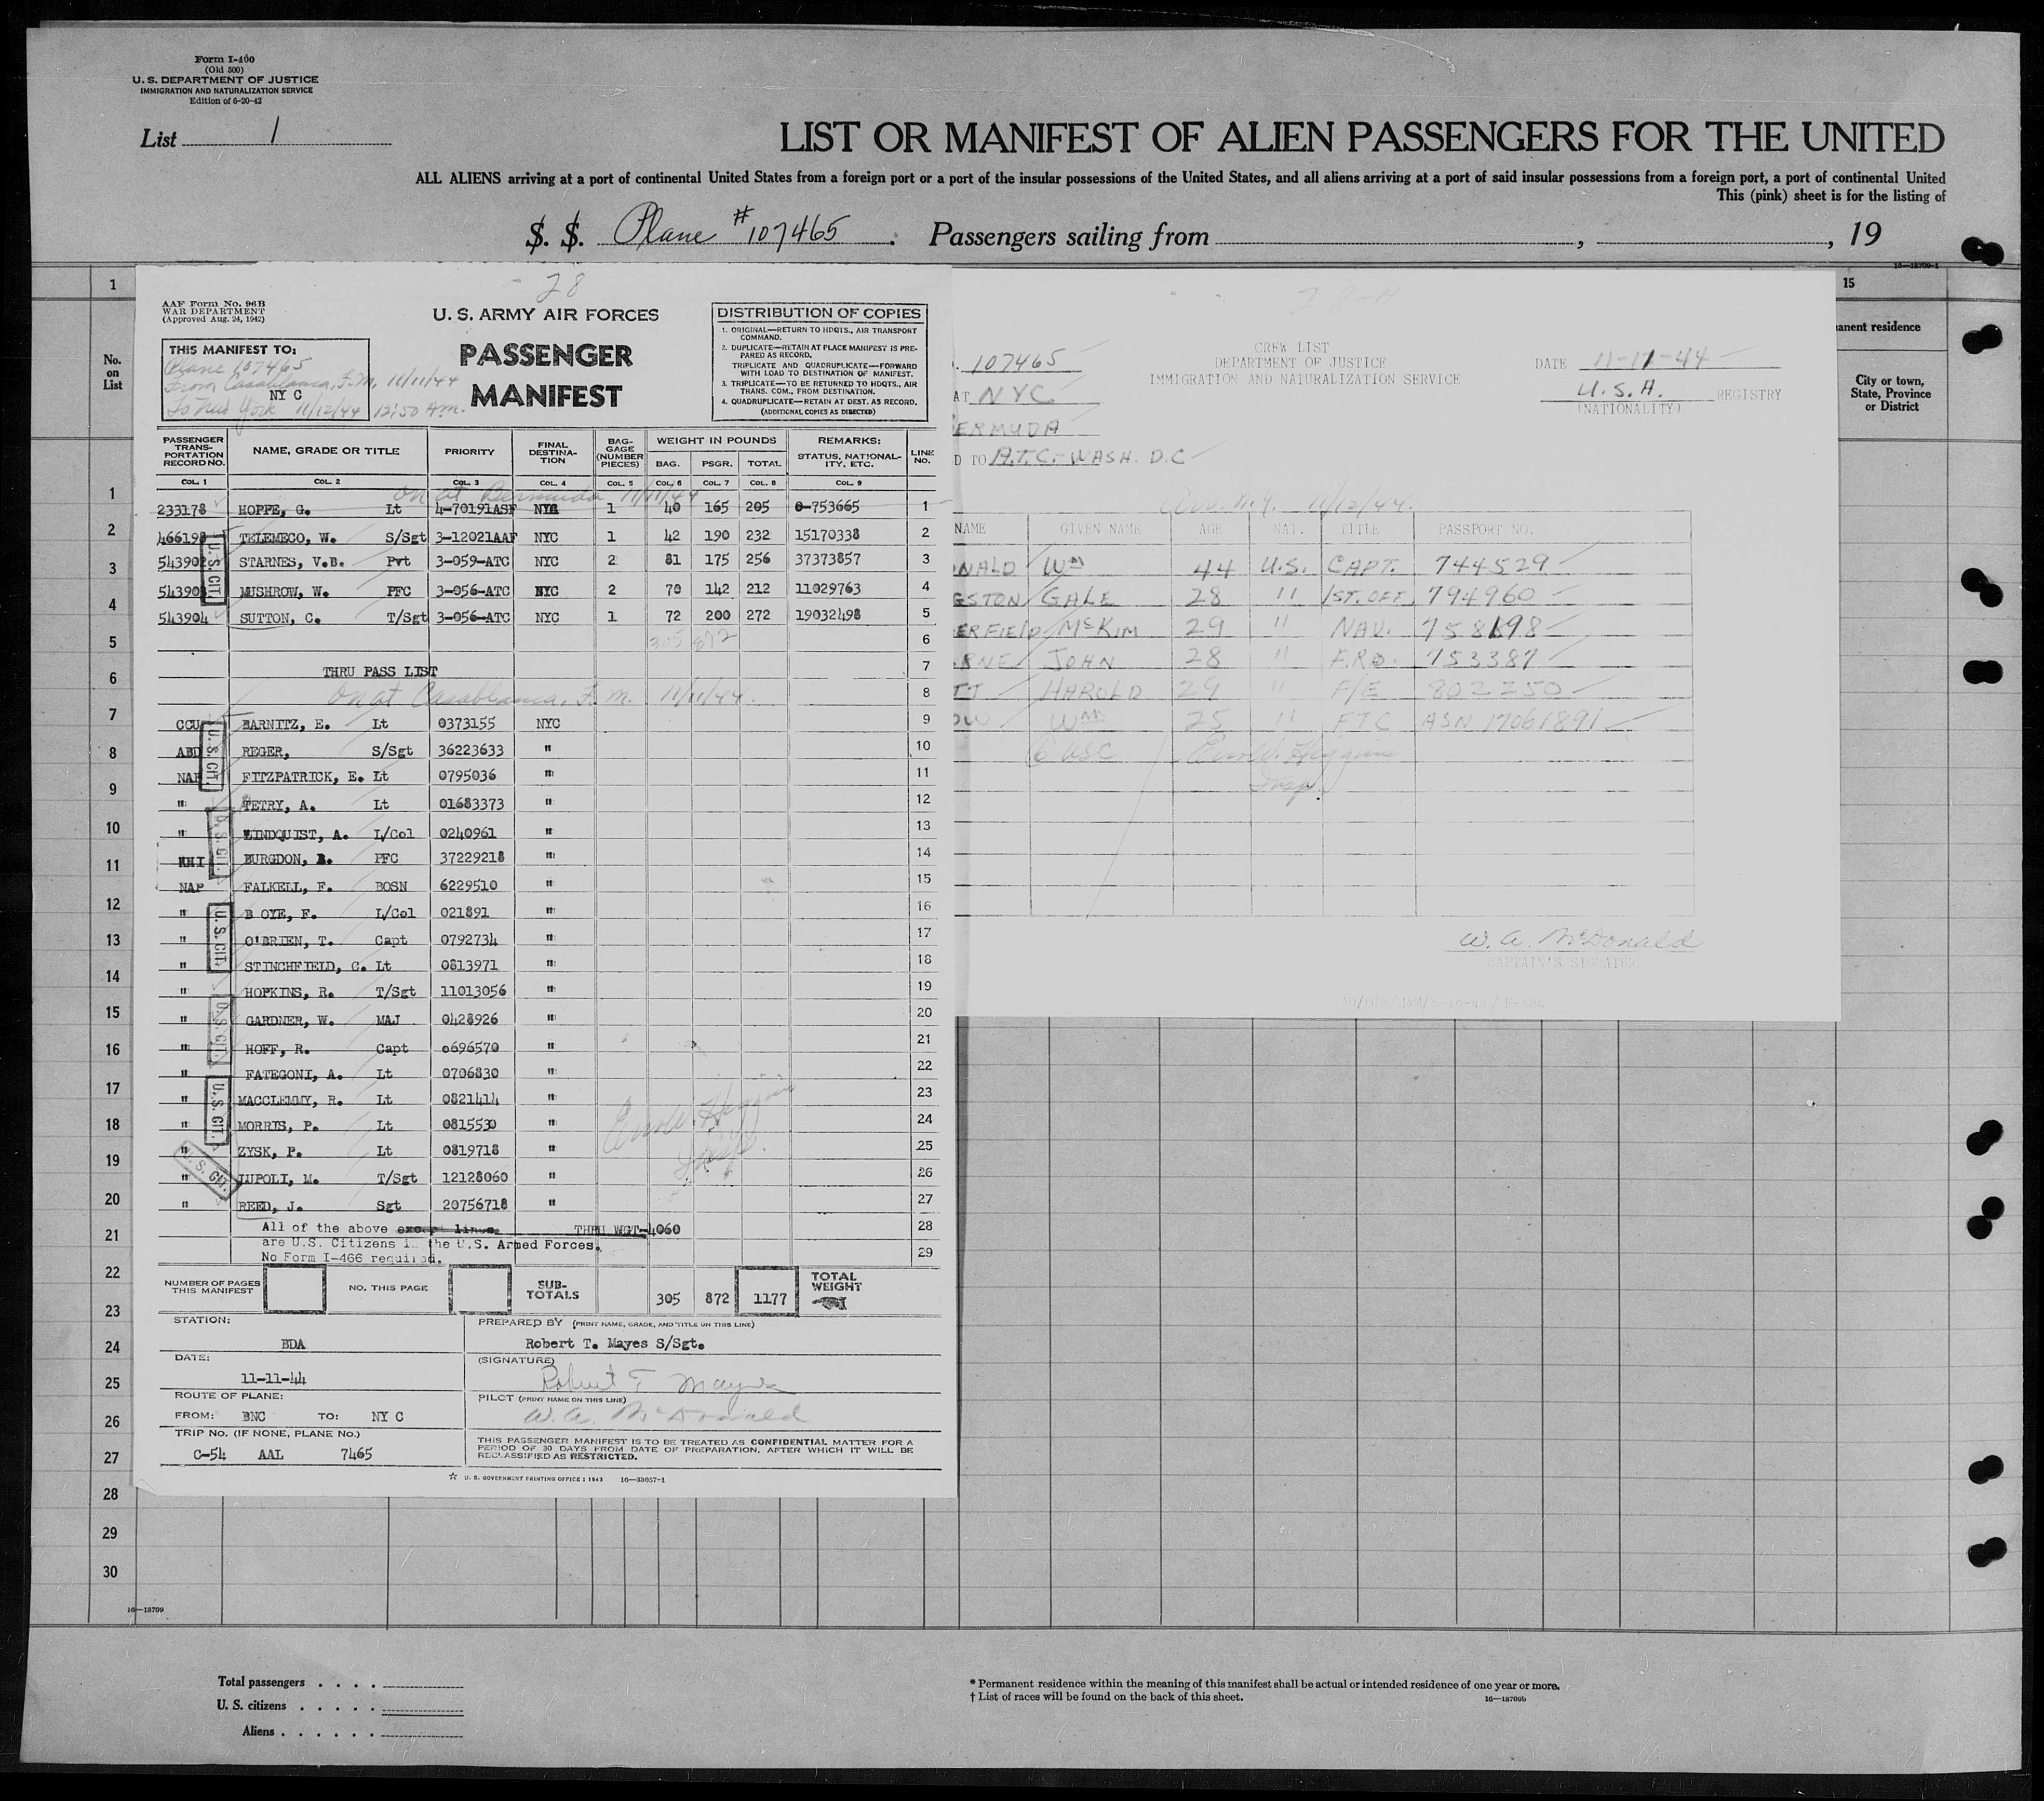 Form I-400
(Old 500)
U. S. DEPARTMENT OF JUSTICE
IMMIGRATION AND NATURALIZATION SERVICE
Edition of 6-20-42
List 1
LIST OR MANIFEST OF ALIEN PASSENGERS FOR THE UNITED
ALL ALIENS arriving at a port of continental United States from a foreign port or a port of the insular possessions of the United States, and all aliens arriving at a port of said insular possessions from a foreign port, a port of continental United
This (pink) sheet is for the listing of
S. S. Plane #107465. Passengers sailing from , , 19
16—18709-1
1
15
No. on List
manent residence
City or town, State, Province or District
28
AAF Form No. 96B
WAR DEPARTMENT
(Approved Aug. 24, 1942)
U. S. ARMY AIR FORCES
PASSENGER
MANIFEST
THIS MANIFEST TO:
Plane 107465
From Casablanca, F.M. 11/11/44
NY C
To New York 11/12/44 12:50 A.m.
DISTRIBUTION OF COPIES
1. ORIGINAL—RETURN TO HDQTS., AIR TRANSPORT COMMAND.
2. DUPLICATE—RETAIN AT PLACE MANIFEST IS PREPARED AS RECORD.
TRIPLICATE AND QUADRUPLICATE—FORWARD WITH LOAD TO DESTINATION OF MANIFEST.
3. TRIPLICATE—TO BE RETURNED TO HDQTS., AIR TRANS. COM., FROM DESTINATION.
4. QUADRUPLICATE—RETAIN AT DEST. AS RECORD.
(ADDITIONAL COPIES AS DIRECTED)
PASSENGER TRANSPORTATION RECORD NO. NAME, GRADE OR TITLE PRIORITY FINAL DESTINATION BAGGAGE (NUMBER PIECES) WEIGHT IN POUNDS REMARKS: STATUS, NATIONALITY, ETC. LINE NO.
BAG. PSGR. TOTAL
COL. 1 COL. 2 COL. 3 COL. 4 COL. 5 COL. 6 COL. 7 COL. 8 COL. 9
On at Bermuda 11/11/44
233178 HOPFE, G. Lt 4-70191ASF NYC 1 40 165 205 0-753665 1
466198 TELEMECO, W. S/Sgt 3-12021AAF NYC 1 42 190 232 15170338 2
543902 STARNES, V.B. Pvt 3-059-ATC NYC 2 81 175 256 37373857 3
543903 MUSHROW, W. PFC 3-056-ATC NYC 2 70 142 212 11029763 4
543904 SUTTON, C. T/Sgt 3-056-ATC NYC 1 72 200 272 19032498 5
305 872 6
THRU PASS LIST 7
On at Casablanca, F. M. 11/11/44. 8
CCU BARNITZ, E. Lt 0373155 NYC 9
ABD REGER, S/Sgt 36223633 " 10
NAP FITZPATRICK, E. Lt 0795036 " 11
" PETRY, A. Lt 01683373 " 12
" LINDQUIST, A. L/Col 0240961 " 13
KHI BURGDON, PFC 37229218 " 14
NAP FALKELL, F. BOSN 6229510 " 15
" B OYE, F. L/Col 021891 " 16
" O'BRIEN, T. Capt 0792734 " 17
" STINCHFIELD, C. Lt 0813971 " 18
" HOPKINS, R. T/Sgt 11013056 " 19
" GARDNER, W. MAJ 0428926 " 20
" HOFF, R. Capt o696570 " 21
" FATEGONI, A. Lt 0706830 " 22
" MACCLEMMY, R. Lt 0821414 " 23
" MORRIS, P. Lt 0815530 " 24
" ZYSK, P. Lt 0819718 " 25
" LUPOLI, M. T/Sgt 12128060 " 26
" REED, J. Sgt 20756718 " 27
U.S. CIT.
U.S. CIT.
U.S. CIT.
U.S. CIT.
U.S. CIT.
U.S. CIT.
U.S. CIT.
Insp.
All of the above except lines THRU WGT-4060 28
are U.S. Citizens in the U.S. Armed Forces.
No Form I-466 required. 29
NUMBER OF PAGES THIS MANIFEST NO. THIS PAGE SUB-TOTALS 305 872 1177 TOTAL WEIGHT
STATION:
BDA
PREPARED BY (PRINT NAME, GRADE, AND TITLE ON THIS LINE)
Robert T. Mayes S/Sgt.
DATE:
11-11-44
(SIGNATURE)
Robert T Mayes
ROUTE OF PLANE:
FROM: BNC TO: NY C
PILOT (PRINT NAME ON THIS LINE)
W. A. McDonald
TRIP No. (IF NONE, PLANE NO.)
C-54 AAL 7465
THIS PASSENGER MANIFEST IS TO BE TREATED AS CONFIDENTIAL MATTER FOR A PERIOD OF 30 DAYS FROM DATE OF PREPARATION, AFTER WHICH IT WILL BE RECLASSIFIED AS RESTRICTED.
☆ U. S. GOVERNMENT PRINTING OFFICE : 1943 16—33057-1
28-A
CREW LIST
DEPARTMENT OF JUSTICE
IMMIGRATION AND NATURALIZATION SERVICE
. 107465
DATE 11-11-44
AT NYC
U.S.A. REGISTRY
(NATIONALITY)
ERMUDA
D TO A.T.C.-WASH. D.C
Arr. N.Y. 11/12/44.
NAME GIVEN NAME AGE NAT. TITLE PASSPORT NO.
NALD Wm 44 U.S. CAPT. 744529
GSTON GALE 28 " 1ST. OFF. 794960
ERFIELD McKIM 29 " NAV. 758898
RNE JOHN 28 " F.R.O. 753387
TT HAROLD 29 " F/E 802250
OW Wm 25 " FTC ASN 17061891
6 USC
Insp.
W. A. McDonald
CAPTAIN'S SIGNATURE
1
2
3
4
5
6
7
8
9
10
11
12
13
14
15
16
17
18
19
20
21
22
23
24
25
26
27
28
29
30
16—18709
Total passengers . . . .
U. S. citizens . . . . .
Aliens . . . . . .
* Permanent residence within the meaning of this manifest shall be actual or intended residence of one year or more.
† List of races will be found on the back of this sheet.
16—18709b